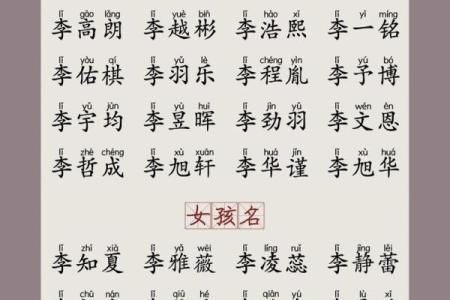 lǐ gāo lǎng lǐ yuè bīn lǐ hào xī lǐ yī míng
李高朗 李越彬 李浩熙 李一铭
lǐ yòu qí lǐ yǔ lè lǐ chéng yìn lǐ yǔ bó
李佑棋 李羽乐 李程胤 李予博
lǐ yǔ jūn lǐ yù huī lǐ jìn yǔ lǐ wén ēn
李宇均 李昱晖 李劲羽 李文恩
lǐ zhé chéng lǐ xù xuān lǐ huá jǐn lǐ xù huá
李哲成 李旭轩 李华谨 李旭华
女孩名
lǐ zhī xià lǐ yǎ wēi lǐ líng ruǐ lǐ jìng lěi
李知夏 李雅薇 李凌蕊 李静蕾
lǐ chǔ nán lǐ yǔ lǐ lǐ